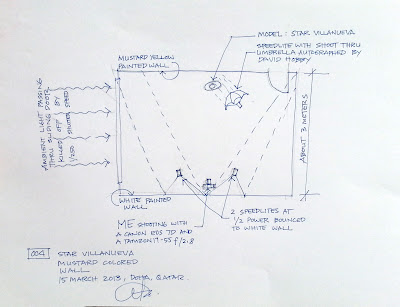 MODEL: STAR VILLANUEVA
SPEEDLITE WITH SHOOT THRU
UMBRELLA AUTOGRAPHED BY
DAVID HOBBY
MUSTARD YELLOW
PAINTED WALL
AMBIENT LIGHT PASSING
THRU SLIDING DOOR
KILLED OFF BY
1/250 SHUTTER SPEED
ABOUT 3 METERS
WHITE PAINTED
WALL
ME SHOOTING WITH
A CANON EOS 7D AND
A TAMRON 17-55 f/2.8
2 SPEEDLITES AT
1/2 POWER BOUNCED
TO WHITE WALL
004
STAR VILLANUEVA
MUSTARD COLORED
WALL
15 MARCH 2013, DOHA, QATAR.